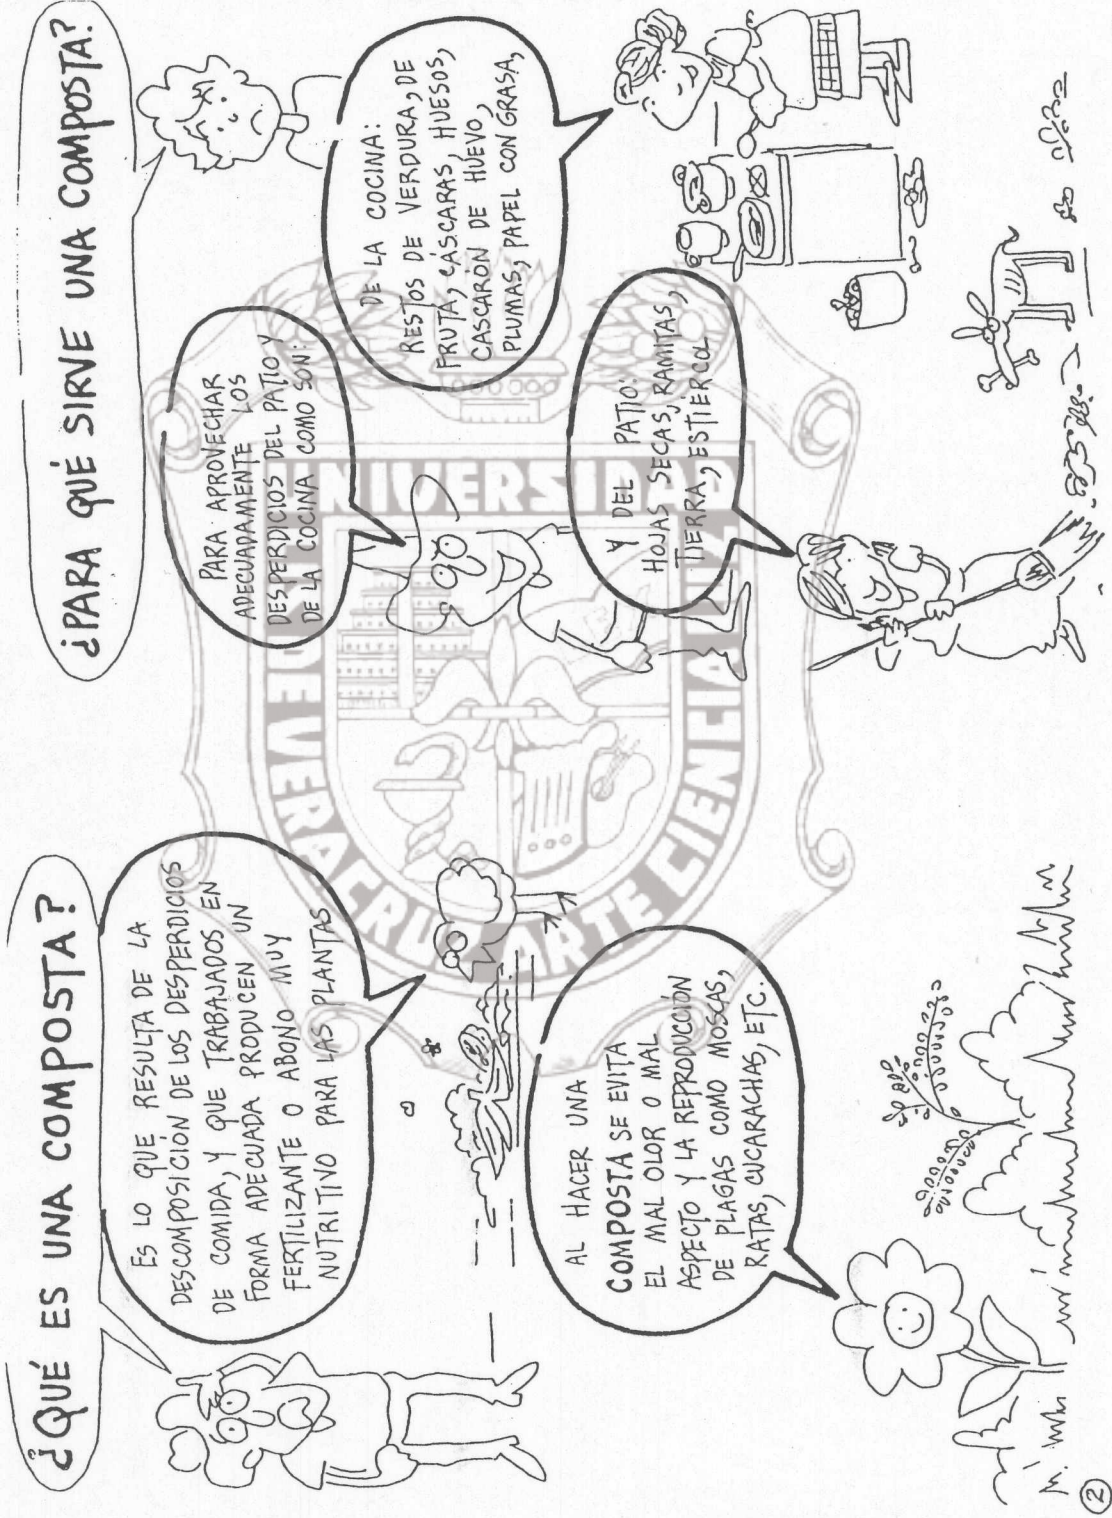 ¿QUÉ ES UNA COMPOSTA?
ES LO QUE RESULTA DE LA
DESCOMPOSICIÓN DE LOS DESPERDICIOS
DE COMIDA, Y QUE TRABAJADOS EN
FORMA ADECUADA PRODUCEN UN
FERTILIZANTE O ABONO MUY
NUTRITIVO PARA LAS PLANTAS
AL HACER UNA
COMPOSTA SE EVITA
EL MAL OLOR O MAL
ASPECTO Y LA REPRODUCCIÓN
DE PLAGAS COMO MOSCAS,
RATAS, CUCARACHAS, ETC.
2
¿PARA QUÉ SIRVE UNA COMPOSTA?
PARA APROVECHAR
ADECUADAMENTE LOS
DESPERDICIOS DEL PATIO Y
DE LA COCINA COMO SON:
DE LA COCINA:
RESTOS DE VERDURA, DE
FRUTA, CÁSCARAS, HUESOS,
CASCARÓN DE HUEVO,
PLUMAS, PAPEL CON GRASA,
Y DEL PATIO:
HOJAS SECAS, RAMITAS,
TIERRA, ESTIERCOL
UNIVERSIDAD
DE VERACRUZ
ARTE CIENCIA